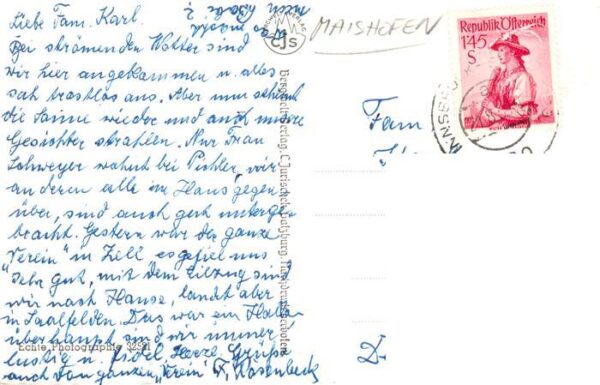 Liebe Fam. Karl.
Bei strömenden Wetter sind
wir hier angekommen u. alles
sah trostlos aus. Aber nun scheint
die Sonne wieder und auch unsere
Gesichter strahlen. Nur Frau
Schweyer wohnt bei Pichler, wir
anderen alle im Haus gegen
über, sind auch gut unterge-
bracht. Gestern war der ganze
"Verein" in Zell, es gefiel uns
sehr gut, mit dem Eilzug sind
wir nach Hause, landt aber
in Saalfelden. Das war ein Hallo
überhaupt sind wir immer
lustig u. fidel. Herzl. Grüße
auch vom ganzen "Verein" Rosenbeck
Echte Photographie
CJS
MAISHOFEN
Republik Österreich
1.45
S
INNSBRUCK
Fam
D.